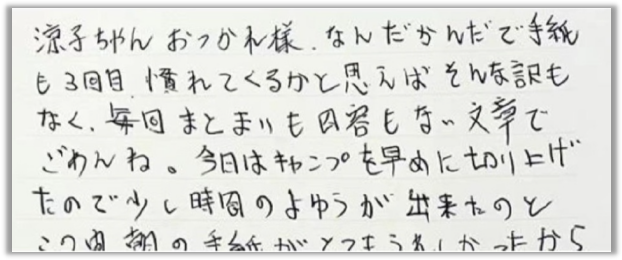 涼子ちゃん おつかれ様、なんだかんだで手紙
も3回目、慣れてくるかと思えばそんな訳も
なく、毎回まとまりも内容もない文章で
ごめんね。今日はキャンプを早めに切り上げ
たので少し時間のよゆうが出来たのと
この間朝の手紙がとてもうれしかったから